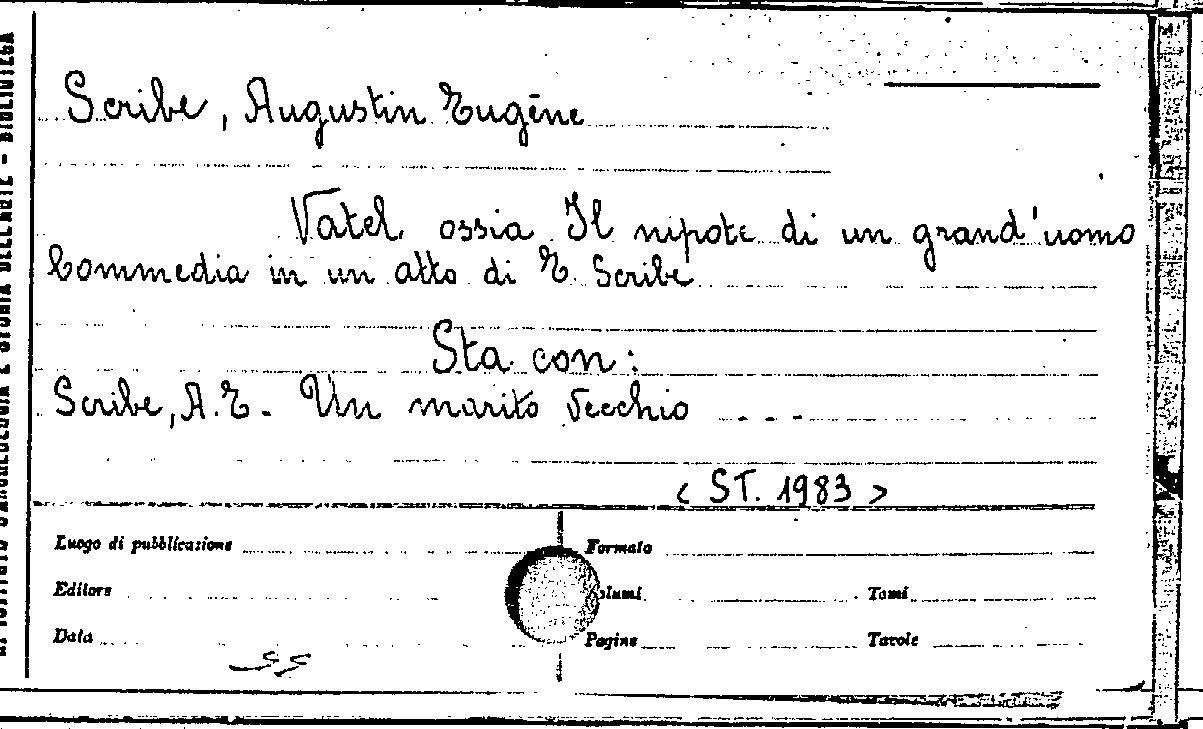 Scribe, Augustin Eugène
Vatel ossia Il nipote di un grand'uomo
Commedia in un atto di E. Scribe
Sta con:
Scribe, A.E. - Un marito vecchio - - -
< ST. 1983 >
Luogo di pubblicazione
Formato
Editore
olumi
Tomi
Data
Pagine
Tavole